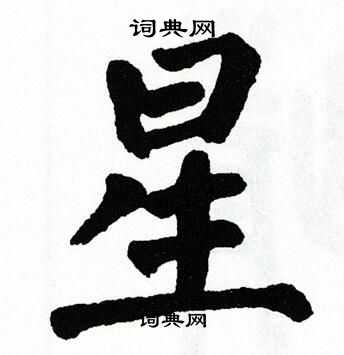 词典网
星
词典网